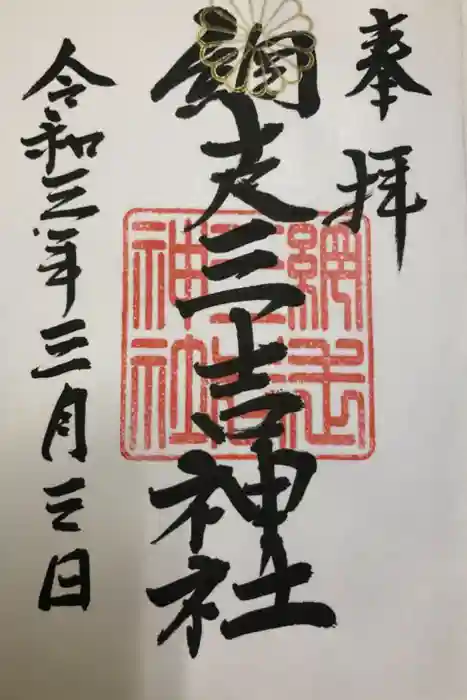 奉拝
網走三吉神社
網走三吉神社
令和三年三月三日